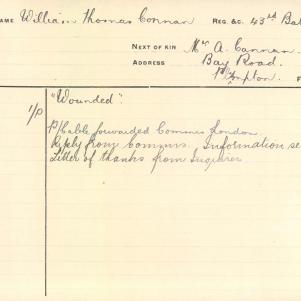 AME William Thomas Connan REG. &C. 43rd Bat
NEXT OF KIN Mrs A. Cannan
ADDRESS Bay Road.
mpton.
F
1/0 "Wounded".
P/Cable forwarded Commrs London
Reply from Commrs. Information se
Letter of thanks from Inquirer